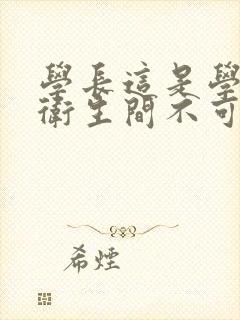 學長這是學
衛生間不可
希煙